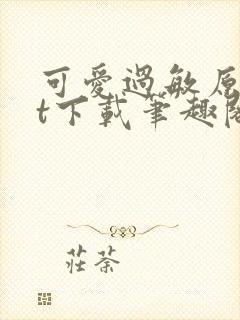 可愛過敏原
t下載筆趣閣
莊荼